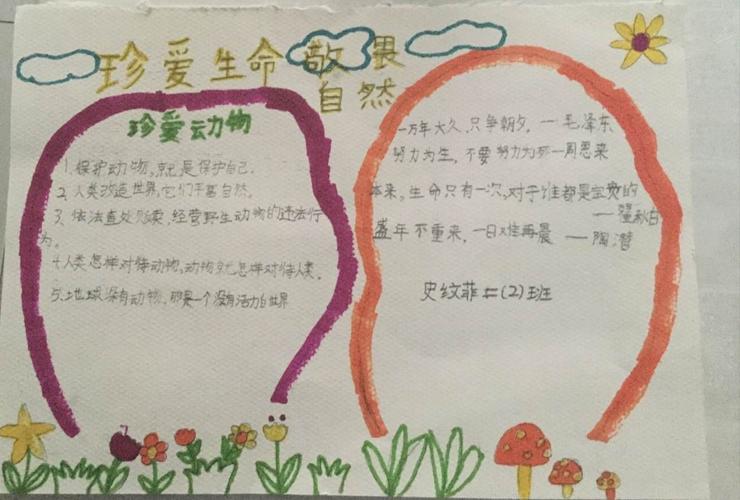 珍爱生命敬畏
自然
珍爱动物
1.保护动物,就是保护自己.
2.人类改造世界,它们丰富自然.
3.依法查处贩卖,经营野生动物的违法行
为。
4.人类怎样对待动物,动物就怎样对待人类.
5.地球没有动物,那是一个没有活力的世界
一万年太久,只争朝夕.一毛泽东
努力为生,不要努力为死一周恩来
本来,生命只有一次,对于谁都是宝贵的
——瞿秋白
盛年不重来,一日难再晨——陶潜
史纹菲二(2)班